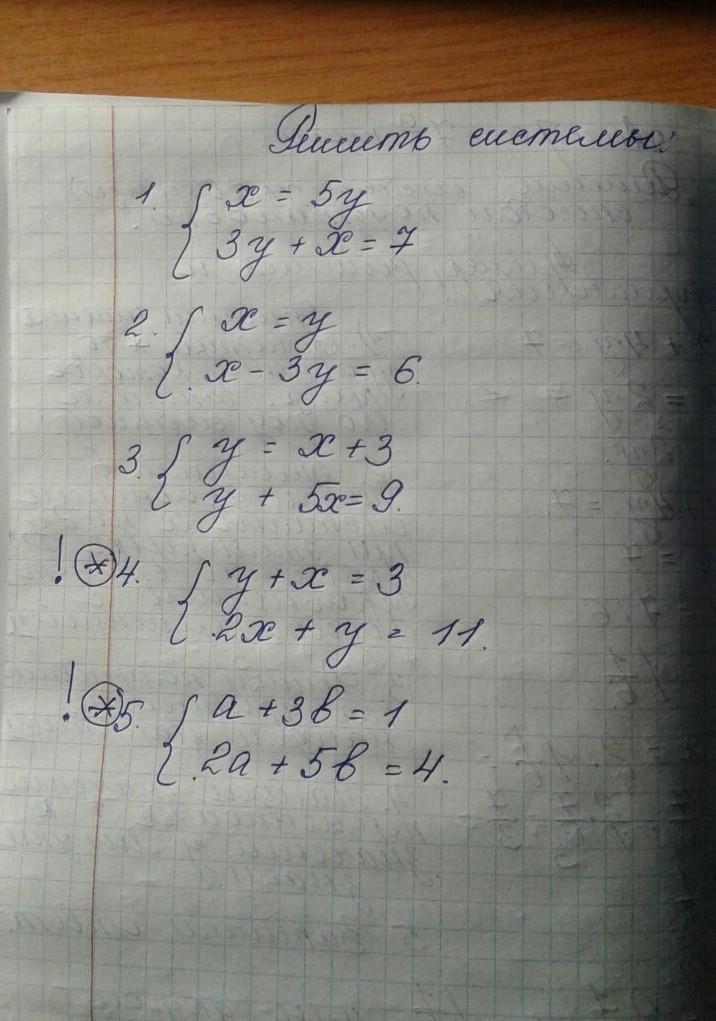 Решить системы:
1. { x = 5y
3y + x = 7
2. { x = y
x - 3y = 6.
3. { y = x + 3
y + 5x = 9.
! * 4. { y + x = 3
2x + y = 11.
! * 5. { a + 3b = 1
2a + 5b = 4.